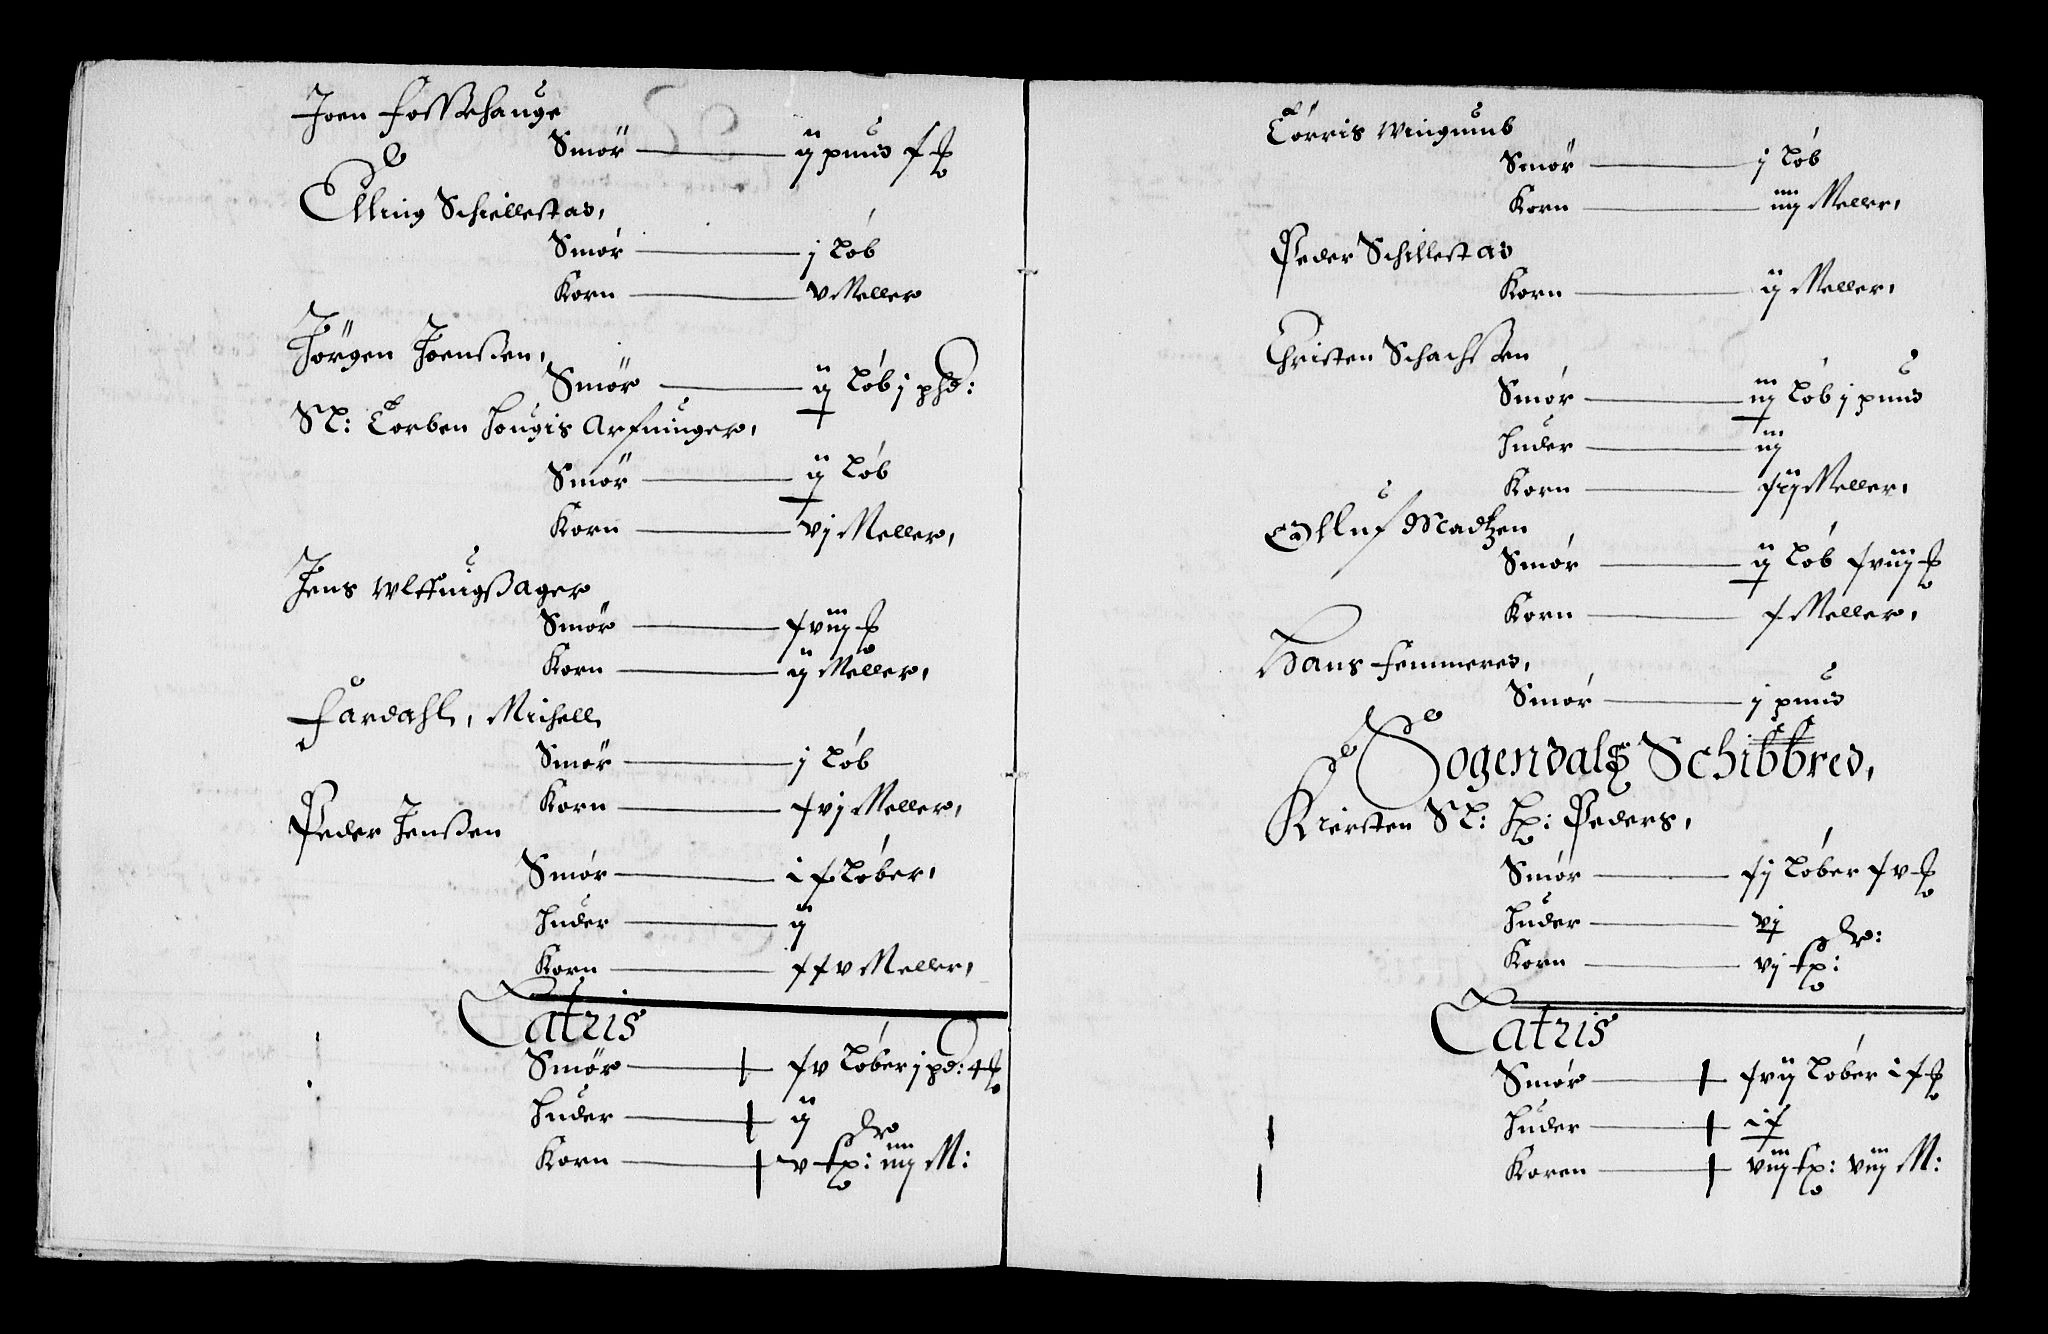 Joen Fosßehauge
Smör — ij pund x ₶
Elling Schiellestad,
Smör — j Lób
Korn — v Meller
Jörgen Joenssen,
Smör — ij Lób j phd:
Sl: Torben Hougis Arfuinger,
Smör — ij Lób
Korn — vj Meller,
Jens
Smör — xviij ₶
Korn — ij Meller,
Fardahl, Michell
Smör — j Lób
Korn — xvj Meller,
Peder Jenßen
Smör — ix Lóber,
Huder — ij
Korn — xxv Meller,
Latris
Smör — xv Lóber j pd: 4 ₶
Huder — ij
Korn — v Pd: iiij M:
Törris Wingumb
Smör — j Lób
Korn — iiij Meller,
Peder Schillestad
Korn — ij Meller,
Christen Schachßen
Smör — iij Lób j pund
Huder — iij
Korn — xij Meller,
Olluf Madtzen
Smör — ij Lób xviij ₶
Korn — x Meller,
Hans Femmered,
Smör — j pund
Sogendalß Schibbred,
Kiersten Sl: Hr: Peders,
Smör — xj Lóber xv ₶
Huder — vj
Korn — vj Pd:
Latris
Smör — xvij Lóber ix ₶
Huder — ix
Koren — viij Pd: viij M: